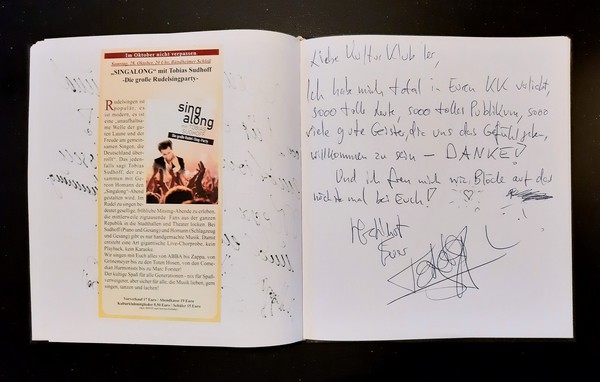 Im Oktober nicht verpassen
Samstag, 28. Oktober, 20 Uhr, Bündheimer Schloß
„SINGALONG“ mit Tobias Sudhoff
-Die große Rudelsingparty-
Rudelsingen ist
populär, es
ist modern, es ist
eine „unaufhaltsa-
me Welle der gu-
ten Laune und der
Freude am gemein-
samen Singen, die
Deutschland über-
sollt“. Das jeden-
falls sagt Tobias
Sudhoff, der zu-
sammen mit Ge-
rem Homann den
„Singalong“-Abend
gestalten wird. Im
Rudel zu singen be-
deutet gesellige, fröhliche Mitsing-Abende zu erleben,
die mittlerweile Fans aus der ganzen
Republik in die Stadthallen und Theater locken. Bei
Sudhoff (Piano und Gesang) und Homann (Schlagzeug
und Gesang) gibt es nur handgemachte Musik. Dabei
entsteht eine Art gigantische Live-Chorprobe, kein
Playback, kein Karaoke.
Wir singen mit Euch alles von ABBA bis Zappa, von
Grönemeyer bis zu den Toten Hosen, von den Come-
dian Harmonists bis zu Marc Forster!
Der kultige Spaß für alle Generationen - ein für Spaß-
versorgung, aber sicher für alle, die Musik lieben, gern
singen, tanzen und lachen!
Vorverkauf 17 Euro / Abendkasse 19 Euro
Kulturklubmitglieder Euro / Schüler Euro
sing
along
Die große Rudel-Sing-Party
Liebe Kultur Klub ler,
Ich habe mich total in Euren KK verliebt,
sooo tolle Leute, sooo tolles Publikum, sooo
viele gute Geister, die uns das Gefühl geben,
willkommen zu sein – DANKE!
Und ich freu mich wie Blöde auf das
nächste mal bei Euch!
Herzlichst
Euer